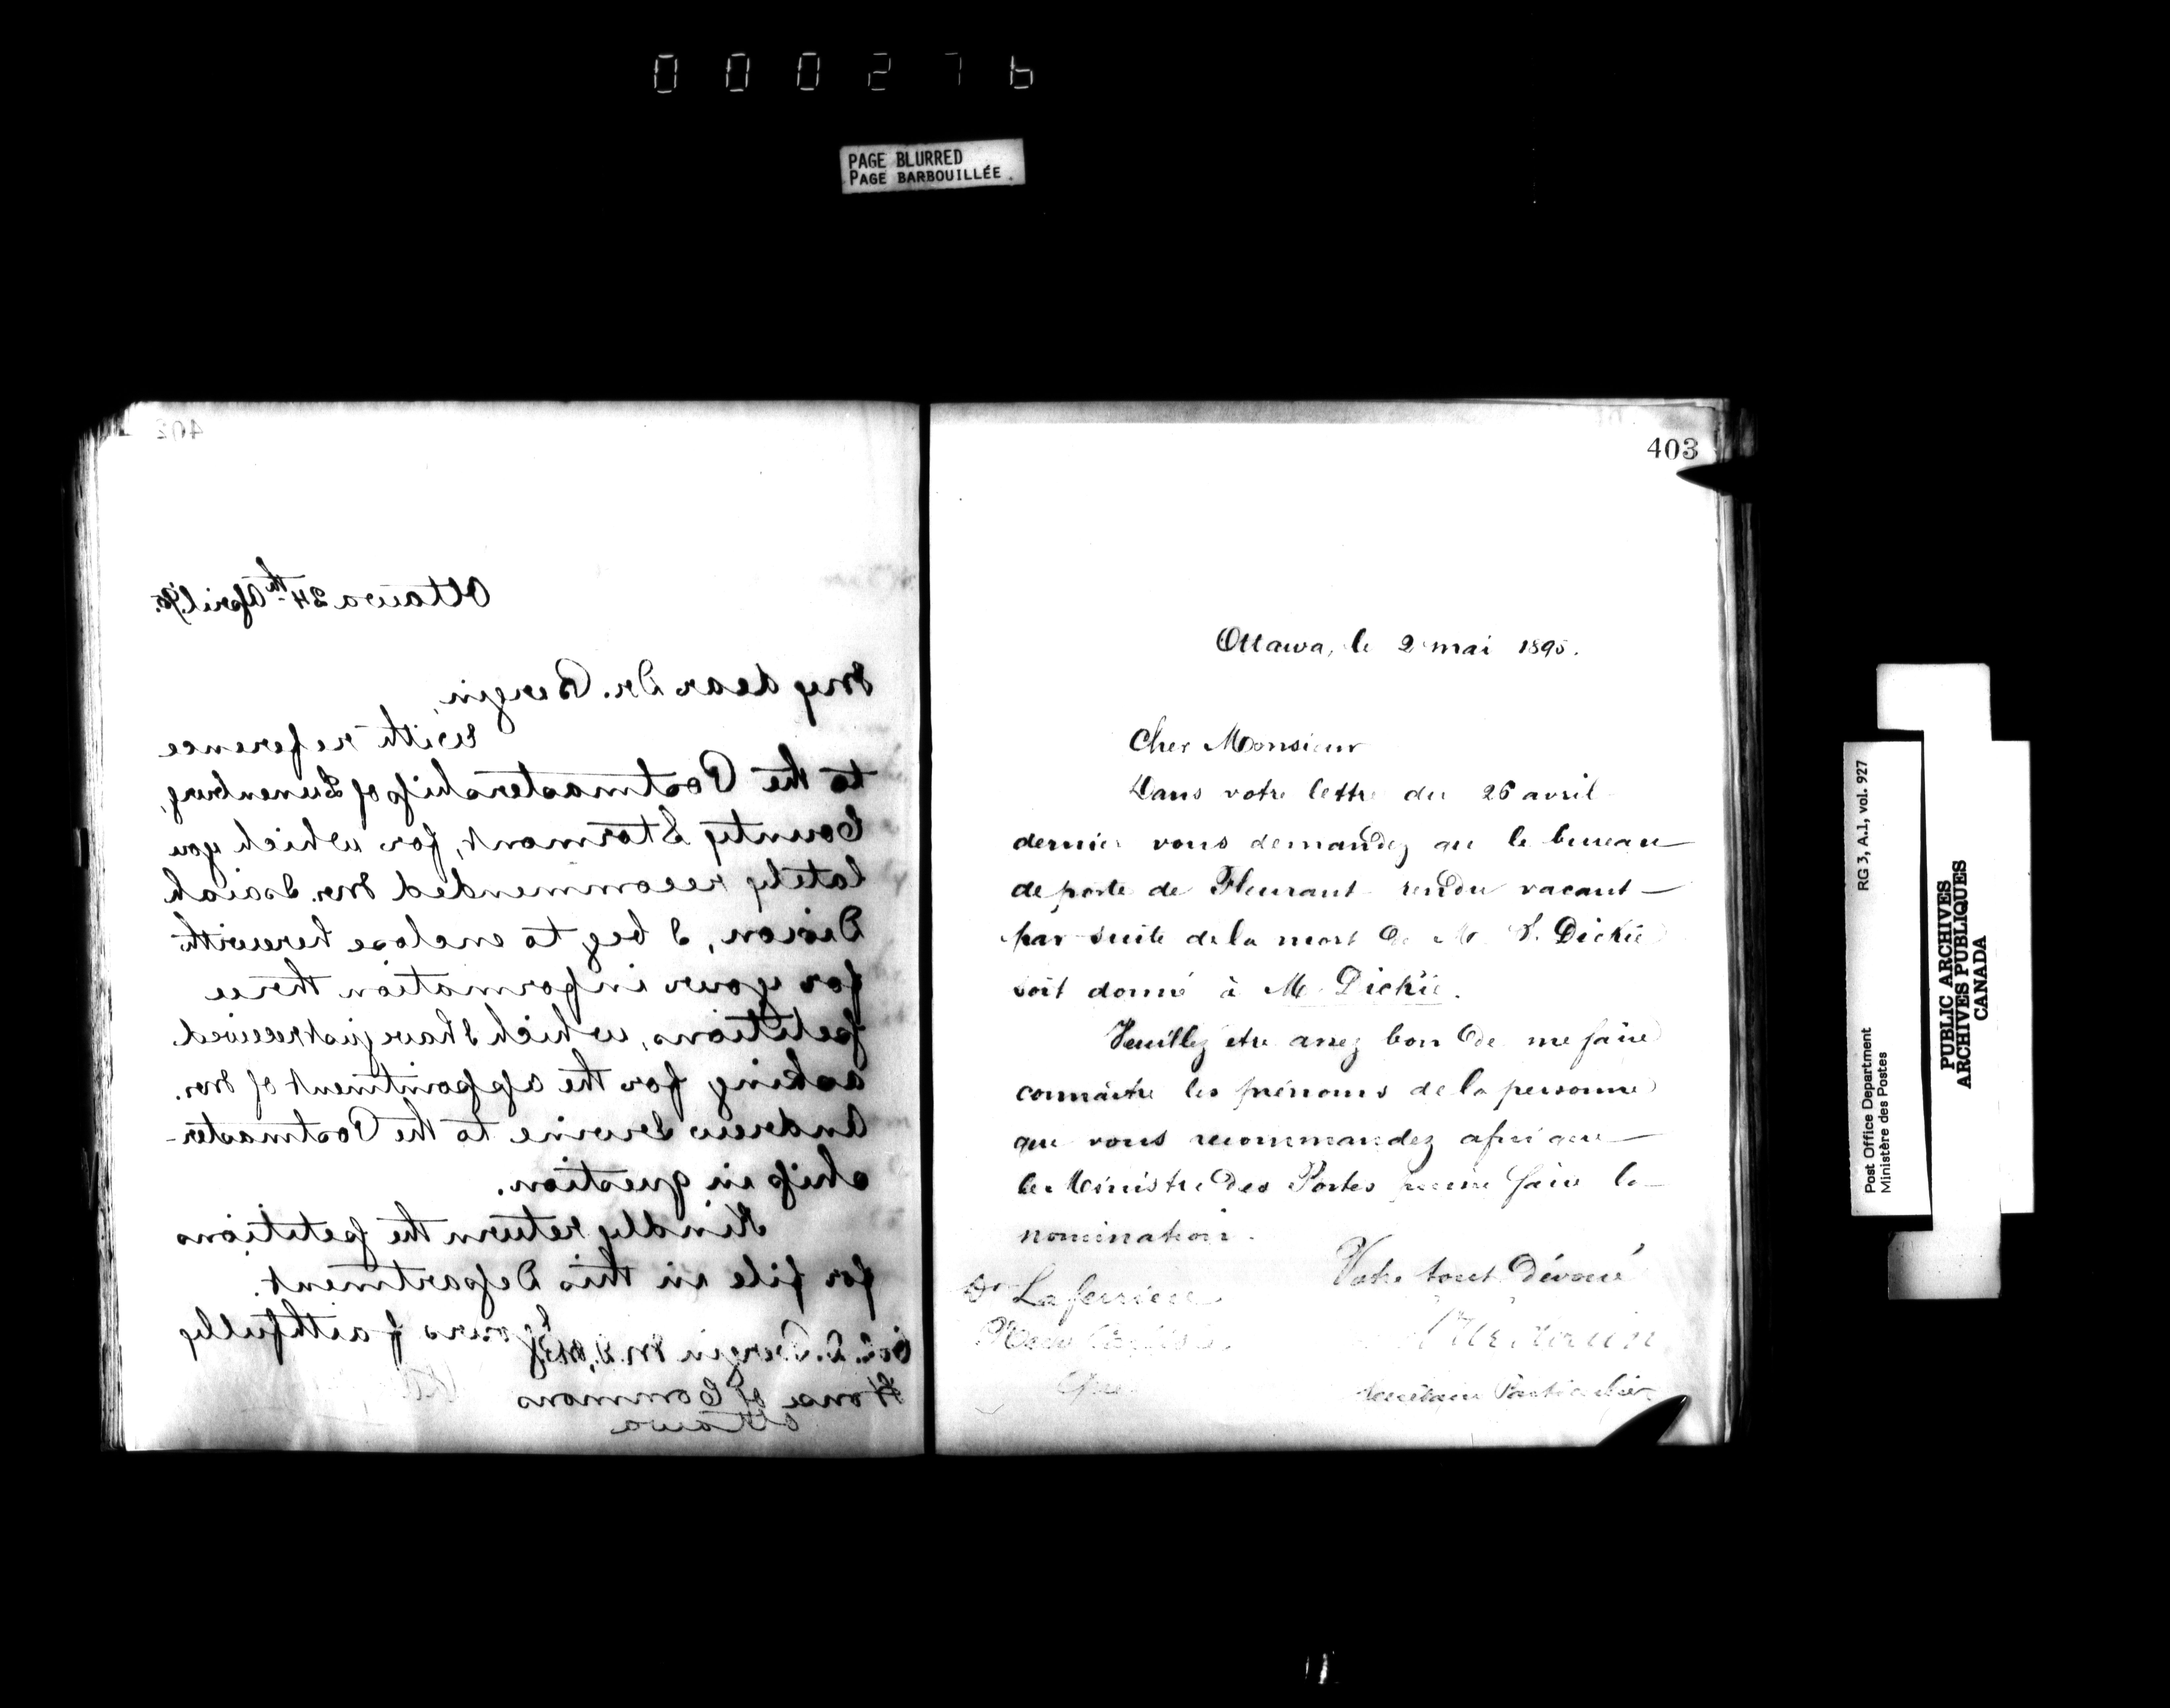 000276
PAGE BLURRED
PAGE BARBOUILLÉE.
402
Ottawa 24th April 95.
My dear Dr. Bergin,
With reference
to the Postmastership of Lunenburg,
County Stormont, for which you
lately recommended Mr. Isaiah
Dixon, I beg to enclose herewith
for your information three
petitions, which I have just received
asking for the appointment of Mr.
Andrew Irvine to the Postmaster-
ship in question.
Kindly return the petitions
for file in this Department.
Yours faithfully
Col. D. Bergin M.D., M.P.
House of Commons
Ottawa
403
Ottawa, le 2 mai 1895.
Cher Monsieur
Dans votre lettre du 26 avril
dernier vous demandez que le bureau
de poste de Fleurant rendu vacant
par suite de la mort de M. Dickie
soit donné à M. Dickie.
Veuillez etre assez bon de me faire
connaitre les prénoms de la personne
que vous recommandez afin que
le Ministre des Postes puisse faire la
nomination.
Votre tout dévoué
Dr Laferriere
New Carlisle
Que.
Secrétaire Particulier
Post Office Department
Ministère des Postes
RG 3, A.1, vol. 927
PUBLIC ARCHIVES
ARCHIVES PUBLIQUES
CANADA